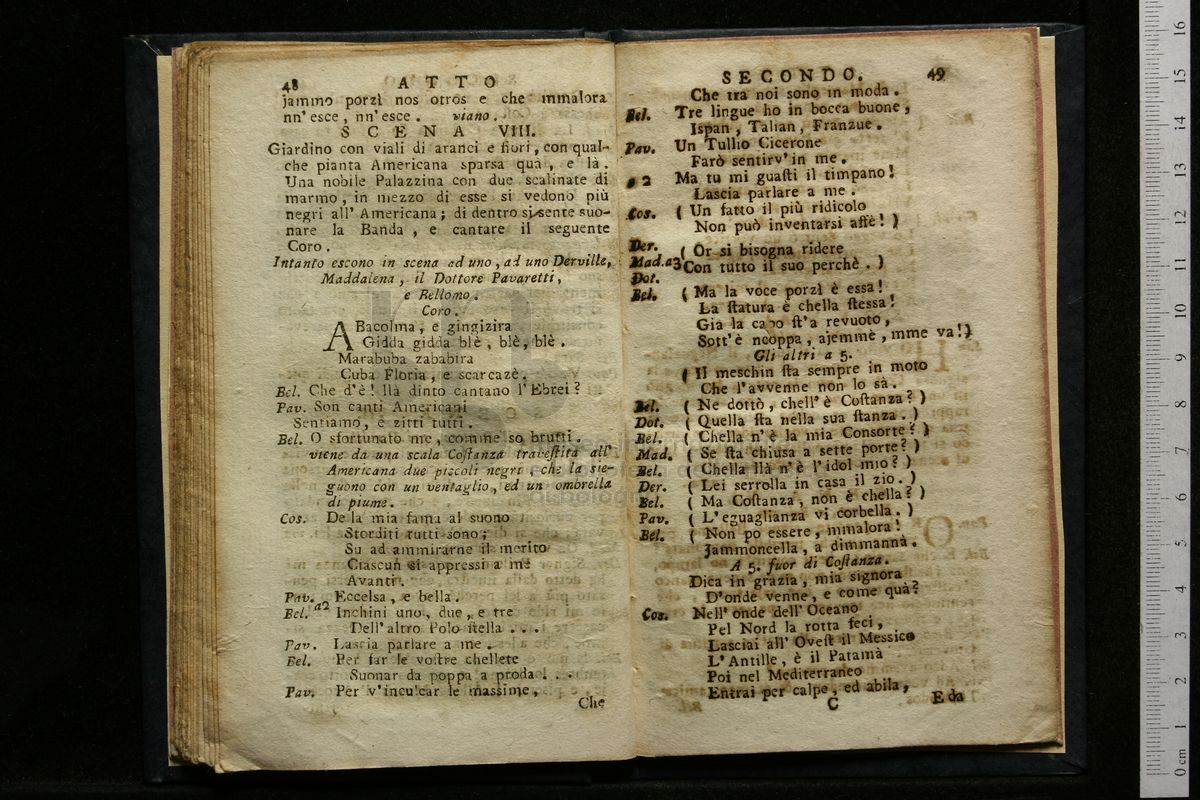 48 ATTO
jammo porzì nos otros e che mmalora
nn' esce, nn' esce. viano.
SCENA VIII.
Giardino con viali di aranci e fiori, con qual-
che pianta Americana sparsa quà, e là.
Una nobile Palazzina con due scalinate di
marmo, in mezzo di esse si vedono più
negri all' Americana; di dentro si sente suo-
nare la Banda, e cantare il seguente
Coro.
Intanto escono in scena ad uno, ad uno Derville,
Maddalena, il Dottore Pavaretti,
e Bellomo.
Coro.
ABacolma, e gingizira
Gidda gidda blè, blè, blè.
Marabuba zababira
Cuba Floria, e scarcazè.
Bel. Che d'è! llà dinto cantano l'Ebrei?
Pav. Son canti Americani
Sentiamo, e zitti tutti.
Bel. O sfortunato me, comme so brutti.
viene da una scala Coſtanza traveſtita all'
Americana due piccoli negri, che la sie-
guono con un ventaglio, ed un ombrella
di piume.
Cos. De la mia fama al suono
Storditi tutti sono;
Su ad ammirarne il merito
Ciascun si appressi a me
Avanti.
Pav. Eccelsa, e bella.
Bel. a2 Inchini uno, due, e tre
Dell' altro Polo ſtella . . .
Pav. Lascia parlare a me.
Bel. Per far le voſtre chellete
Suonar da poppa a proda! . .
Pav. Per v'inculcar le massime,
Che
SECONDO. 49
Che tra noi sono in moda.
Bel. Tre lingue ho in bocca buone,
Ispan, Talian, Franzue.
Pav. Un Tullio Cicerone
Farò sentirv' in me.
a 2 Ma tu mi guaſti il timpano!
Lascia parlare a me.
Cos. ( Un fatto il più ridicolo
Non può inventarsi affè! )
Der.
Mad. a3 ( Or si bisogna ridere
Dot. Con tutto il suo perchè. )
Bel. ( Ma la voce porzì è essa!
La ſtatura è chella ſtessa!
Gia la capo ſt'a revuoto,
Sott'è ncoppa, ajemmè, mme va! )
Gli altri a 5.
( Il meschin ſta sempre in moto
Che l'avvenne non lo sà.
Bel. ( Ne dottò, chell' è Coſtanza? )
Dot. ( Quella ſta nella sua ſtanza. )
Bel. ( Chella n' è la mia Consorte? )
Mad. ( Se ſta chiusa a sette porte? )
Bel. ( Chella llà n'è l'idol mio? )
Der. ( Lei serrolla in casa il zio. )
Bel. ( Ma Coſtanza, non è chella? )
Pav. ( L'eguaglianza vi corbella. )
Bel. ( Non po essere, mmalora!
Jammoncella, a dimmannà.
A 5. fuor di Coſtanza.
Dica in grazia, mia signora
D'onde venne, e come quà?
Cos. Nell' onde dell' Oceano
Pel Nord la rotta feci,
Lasciai all' Oveſt il Messico
L'Antille, è il Patamà
Poi nel Mediterraneo
Entrai per calpe, ed abila,
C E da